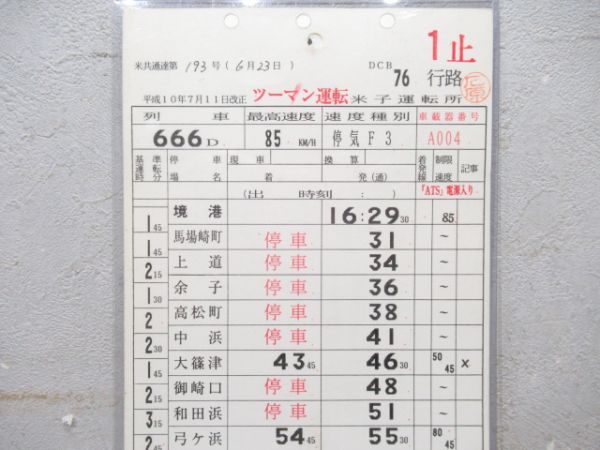 1止
米共通達第 193号(6月23日)
DCB 76 行路
平成10年7月11日改正 ツーマン運転 米子運転所
列車 最高速度 速度種別 車載器番号
666D 85 KM/H 停気F3 A004
基準運転時分 停車場名 現車 換算 着発線 制限速度 記事
着 発(通)
(出 時刻 : ) 「ATS」電源入り
境港 16:29 30 85
1 45
馬場崎町 停車 31 ~
1 45
上道 停車 34 ~
2 15
余子 停車 36 ~
1 30
高松町 停車 38 ~
2
中浜 停車 41 ~
2 30
大篠津 43 45 46 30 50 45 ×
1 45
御崎口 停車 48 ~
2 15
和田浜 停車 51 ~
3 15
弓ヶ浜 54 45 55 30 80 45
2 45